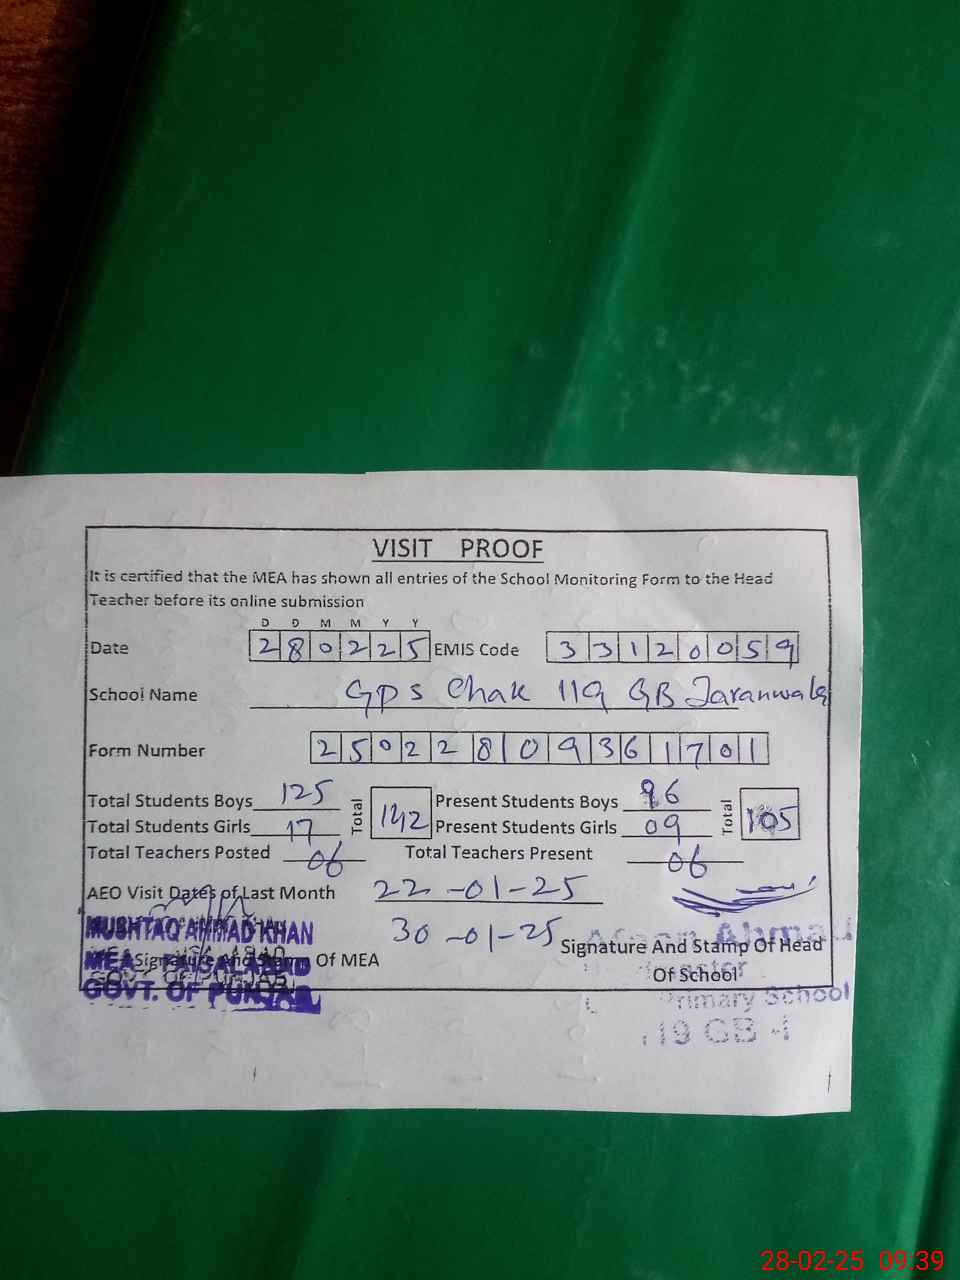 VISIT PROOF
It is certified that the MEA has shown all entries of the School Monitoring Form to the Head
Teacher before its online submission
D D M M Y Y
Date 280225 EMIS Code 33120059
School Name GPS Chak 119 GB Jaranwala
Form Number 250228109361701
Total Students Boys 125 Total 142 Present Students Boys 96 Total 105
Total Students Girls 17 Present Students Girls 09
Total Teachers Posted 06 Total Teachers Present 06
AEO Visit Dates of Last Month 22-01-25
30-01-25
MUSHTAQ AHMAD KHAN
MEA FAISALABAD
GOVT. OF PUNJAB
Signature And Stamp Of MEA
Signature And Stamp Of Head
Of School
Ahmad
Primary School
119 GB
28-02-25 09.39